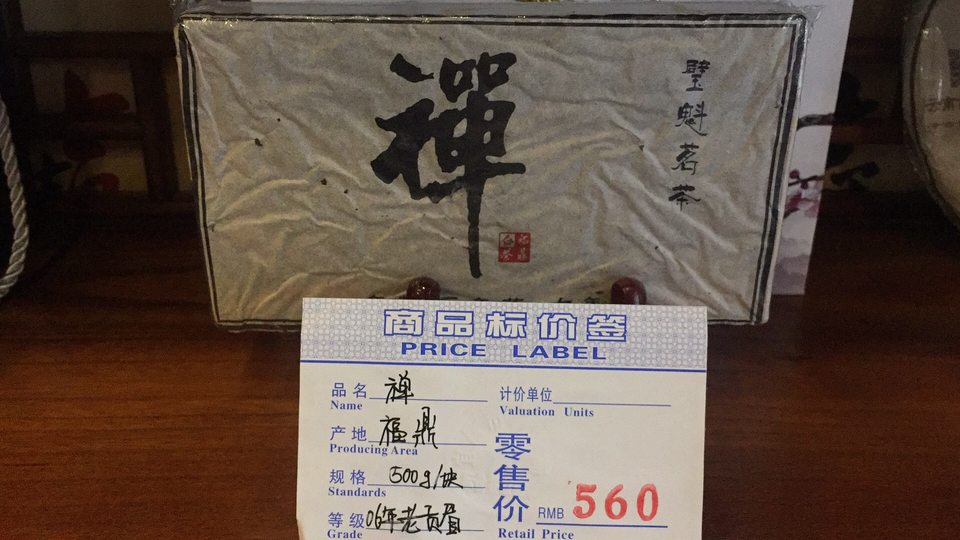 禪
璧魁茗茶
福鼎
白茶
商品标价签
PRICE LABEL
品名 禅
Name
计价单位
Valuation Units
产地 福鼎
Producing Area
规格 500g/块
Standards
等级 06年老贡眉
Grade
零售价
RMB 560
Retail Price